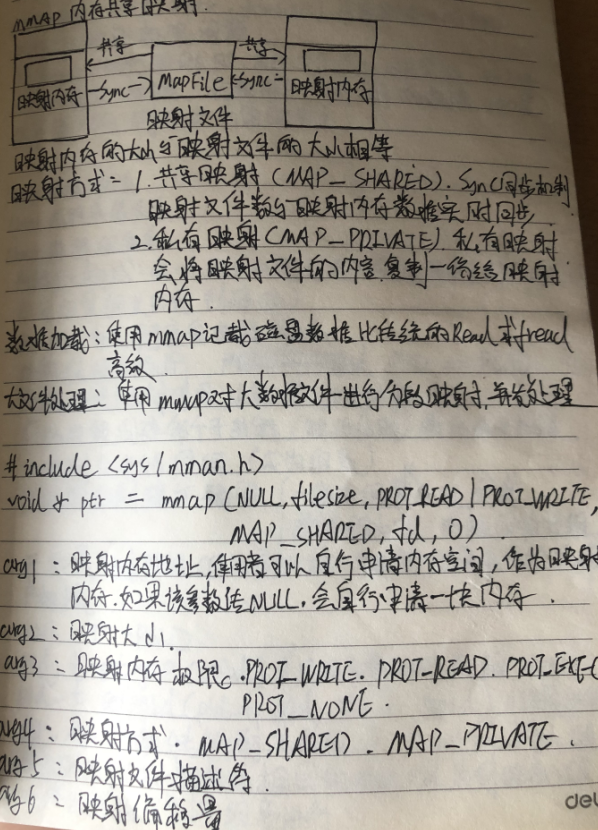 MMAP 内存共享映射.
共享 共享
映射内存 -Sync-> MapFile <-Sync- 映射内存
映射文件
映射内存的大小与映射文件的大小相等
映射方式: 1. 共享映射 (MAP_SHARED). Sync同步机制
映射文件数与映射内存数据实时同步
2. 私有映射 (MAP_PRIVATE). 私有映射
会将映射文件的内容复制一份给映射
内存.
数据加载: 使用mmap记载磁盘数据比传统的Read或fread
高效.
大文件处理: 使用mmap对大数据文件进行分段映射,并发处理
#include <sys/mman.h>
void * ptr = mmap (NULL, filesize, PROT_READ | PROT_WRITE,
MAP_SHARED, fd, 0)
arg1: 映射内存地址, 使用者可以自行申请内存空间, 作为映射
内存. 如果该参数传NULL. 会自行申请一块内存.
arg2: 映射大小.
arg3: 映射内存权限. PROT_WRITE. PROT_READ. PROT_EXEC
PROT_NONE.
arg4: 映射方式. MAP_SHARED. MAP_PRIVATE.
arg5: 映射文件描述符.
arg6: 映射偏移量
del